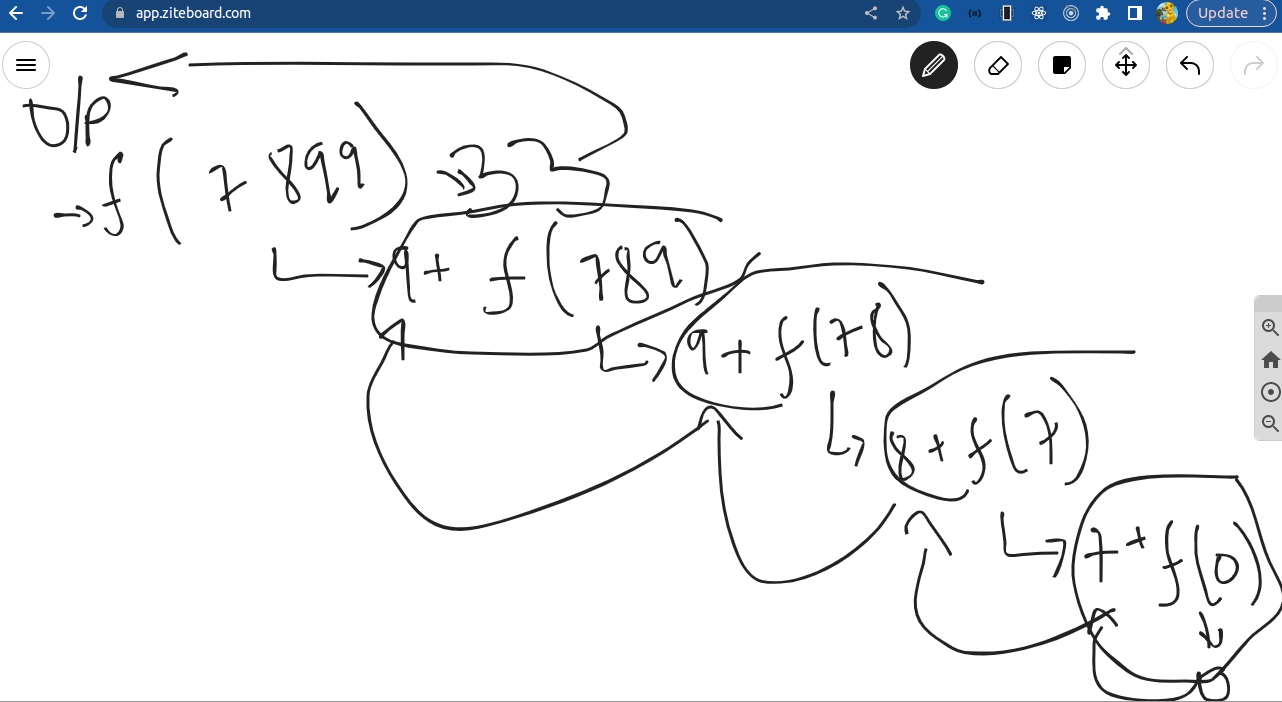 app.ziteboard.com
Update
O/P
→ f(7899) → 33
9 + f(789)
9 + f(78)
8 + f(7)
7 + f(0)
0